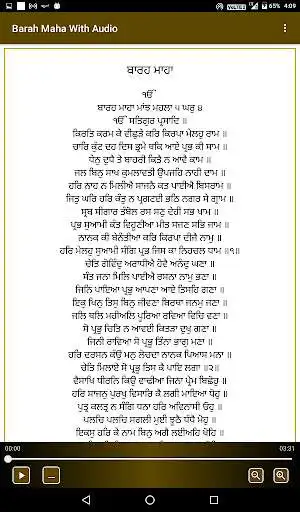 4:09
Barah Maha With Audio
ਬਾਰਹ ਮਾਹਾ
ੴ
ਬਾਰਹ ਮਾਹਾ ਮਾਂਝ ਮਹਲਾ ੫ ਘਰੁ ੪
ੴ ਸਤਿਗੁਰ ਪ੍ਰਸਾਦਿ ॥
ਕਿਰਤਿ ਕਰਮ ਕੇ ਵੀਛੁੜੇ ਕਰਿ ਕਿਰਪਾ ਮੇਲਹੁ ਰਾਮ ॥
ਚਾਰਿ ਕੁੰਟ ਦਹ ਦਿਸ ਭ੍ਰਮੇ ਥਕਿ ਆਏ ਪ੍ਰਭ ਕੀ ਸਾਮ ॥
ਧੇਨੁ ਦੁਧੈ ਤੇ ਬਾਹਰੀ ਕਿਤੈ ਨ ਆਵੈ ਕਾਮ ॥
ਜਲ ਬਿਨੁ ਸਾਖ ਕੁਮਲਾਵਤੀ ਉਪਜਹਿ ਨਾਹੀ ਦਾਮ ॥
ਹਰਿ ਨਾਹ ਨ ਮਿਲੀਐ ਸਾਜਨੈ ਕਤ ਪਾਈਐ ਬਿਸਰਾਮ ॥
ਜਿਤੁ ਘਰਿ ਹਰਿ ਕੰਤੁ ਨ ਪ੍ਰਗਟਈ ਭਠਿ ਨਗਰ ਸੇ ਗ੍ਰਾਮ ॥
ਸ੍ਰਬ ਸੀਗਾਰ ਤੰਬੋਲ ਰਸ ਸਣੁ ਦੇਹੀ ਸਭ ਖਾਮ ॥
ਪ੍ਰਭ ਸੁਆਮੀ ਕੰਤ ਵਿਹੂਣੀਆ ਮੀਤ ਸਜਣ ਸਭਿ ਜਾਮ ॥
ਨਾਨਕ ਕੀ ਬੇਨੰਤੀਆ ਕਰਿ ਕਿਰਪਾ ਦੀਜੈ ਨਾਮੁ ॥
ਹਰਿ ਮੇਲਹੁ ਸੁਆਮੀ ਸੰਗਿ ਪ੍ਰਭ ਜਿਸ ਕਾ ਨਿਹਚਲ ਧਾਮ ॥੧॥
ਚੇਤਿ ਗੋਵਿੰਦੁ ਅਰਾਧੀਐ ਹੋਵੈ ਅਨੰਦੁ ਘਣਾ ॥
ਸੰਤ ਜਨਾ ਮਿਲਿ ਪਾਈਐ ਰਸਨਾ ਨਾਮੁ ਭਣਾ ॥
ਜਿਨਿ ਪਾਇਆ ਪ੍ਰਭੁ ਆਪਣਾ ਆਏ ਤਿਸਹਿ ਗਣਾ ॥
ਇਕੁ ਖਿਨੁ ਤਿਸੁ ਬਿਨੁ ਜੀਵਣਾ ਬਿਰਥਾ ਜਨਮੁ ਜਣਾ ॥
ਜਲਿ ਥਲਿ ਮਹੀਅਲਿ ਪੂਰਿਆ ਰਵਿਆ ਵਿਚਿ ਵਣਾ ॥
ਸੋ ਪ੍ਰਭੁ ਚਿਤਿ ਨ ਆਵਈ ਕਿਤੜਾ ਦੁਖੁ ਗਣਾ ॥
ਜਿਨੀ ਰਾਵਿਆ ਸੋ ਪ੍ਰਭੂ ਤਿੰਨਾ ਭਾਗੁ ਮਣਾ ॥
ਹਰਿ ਦਰਸਨ ਕੰਉ ਮਨੁ ਲੋਚਦਾ ਨਾਨਕ ਪਿਆਸ ਮਨਾ ॥
ਚੇਤਿ ਮਿਲਾਏ ਸੋ ਪ੍ਰਭੂ ਤਿਸ ਕੈ ਪਾਇ ਲਗਾ ॥੨॥
ਵੈਸਾਖਿ ਧੀਰਨਿ ਕਿਉ ਵਾਢੀਆ ਜਿਨਾ ਪ੍ਰੇਮ ਬਿਛੋਹੁ ॥
ਹਰਿ ਸਾਜਨੁ ਪੁਰਖੁ ਵਿਸਾਰਿ ਕੈ ਲਗੀ ਮਾਇਆ ਧੋਹੁ ॥
ਪੁਤ੍ਰ ਕਲਤ੍ਰ ਨ ਸੰਗਿ ਧਨਾ ਹਰਿ ਅਵਿਨਾਸੀ ਓਹੁ ॥
ਪਲਚਿ ਪਲਚਿ ਸਗਲੀ ਮੁਈ ਝੂਠੈ ਧੰਧੈ ਮੋਹੁ ॥
ਇਕਸੁ ਹਰਿ ਕੇ ਨਾਮ ਬਿਨੁ ਅਗੈ ਲਈਅਹਿ ਖੋਹਿ ॥
00:00
03:31